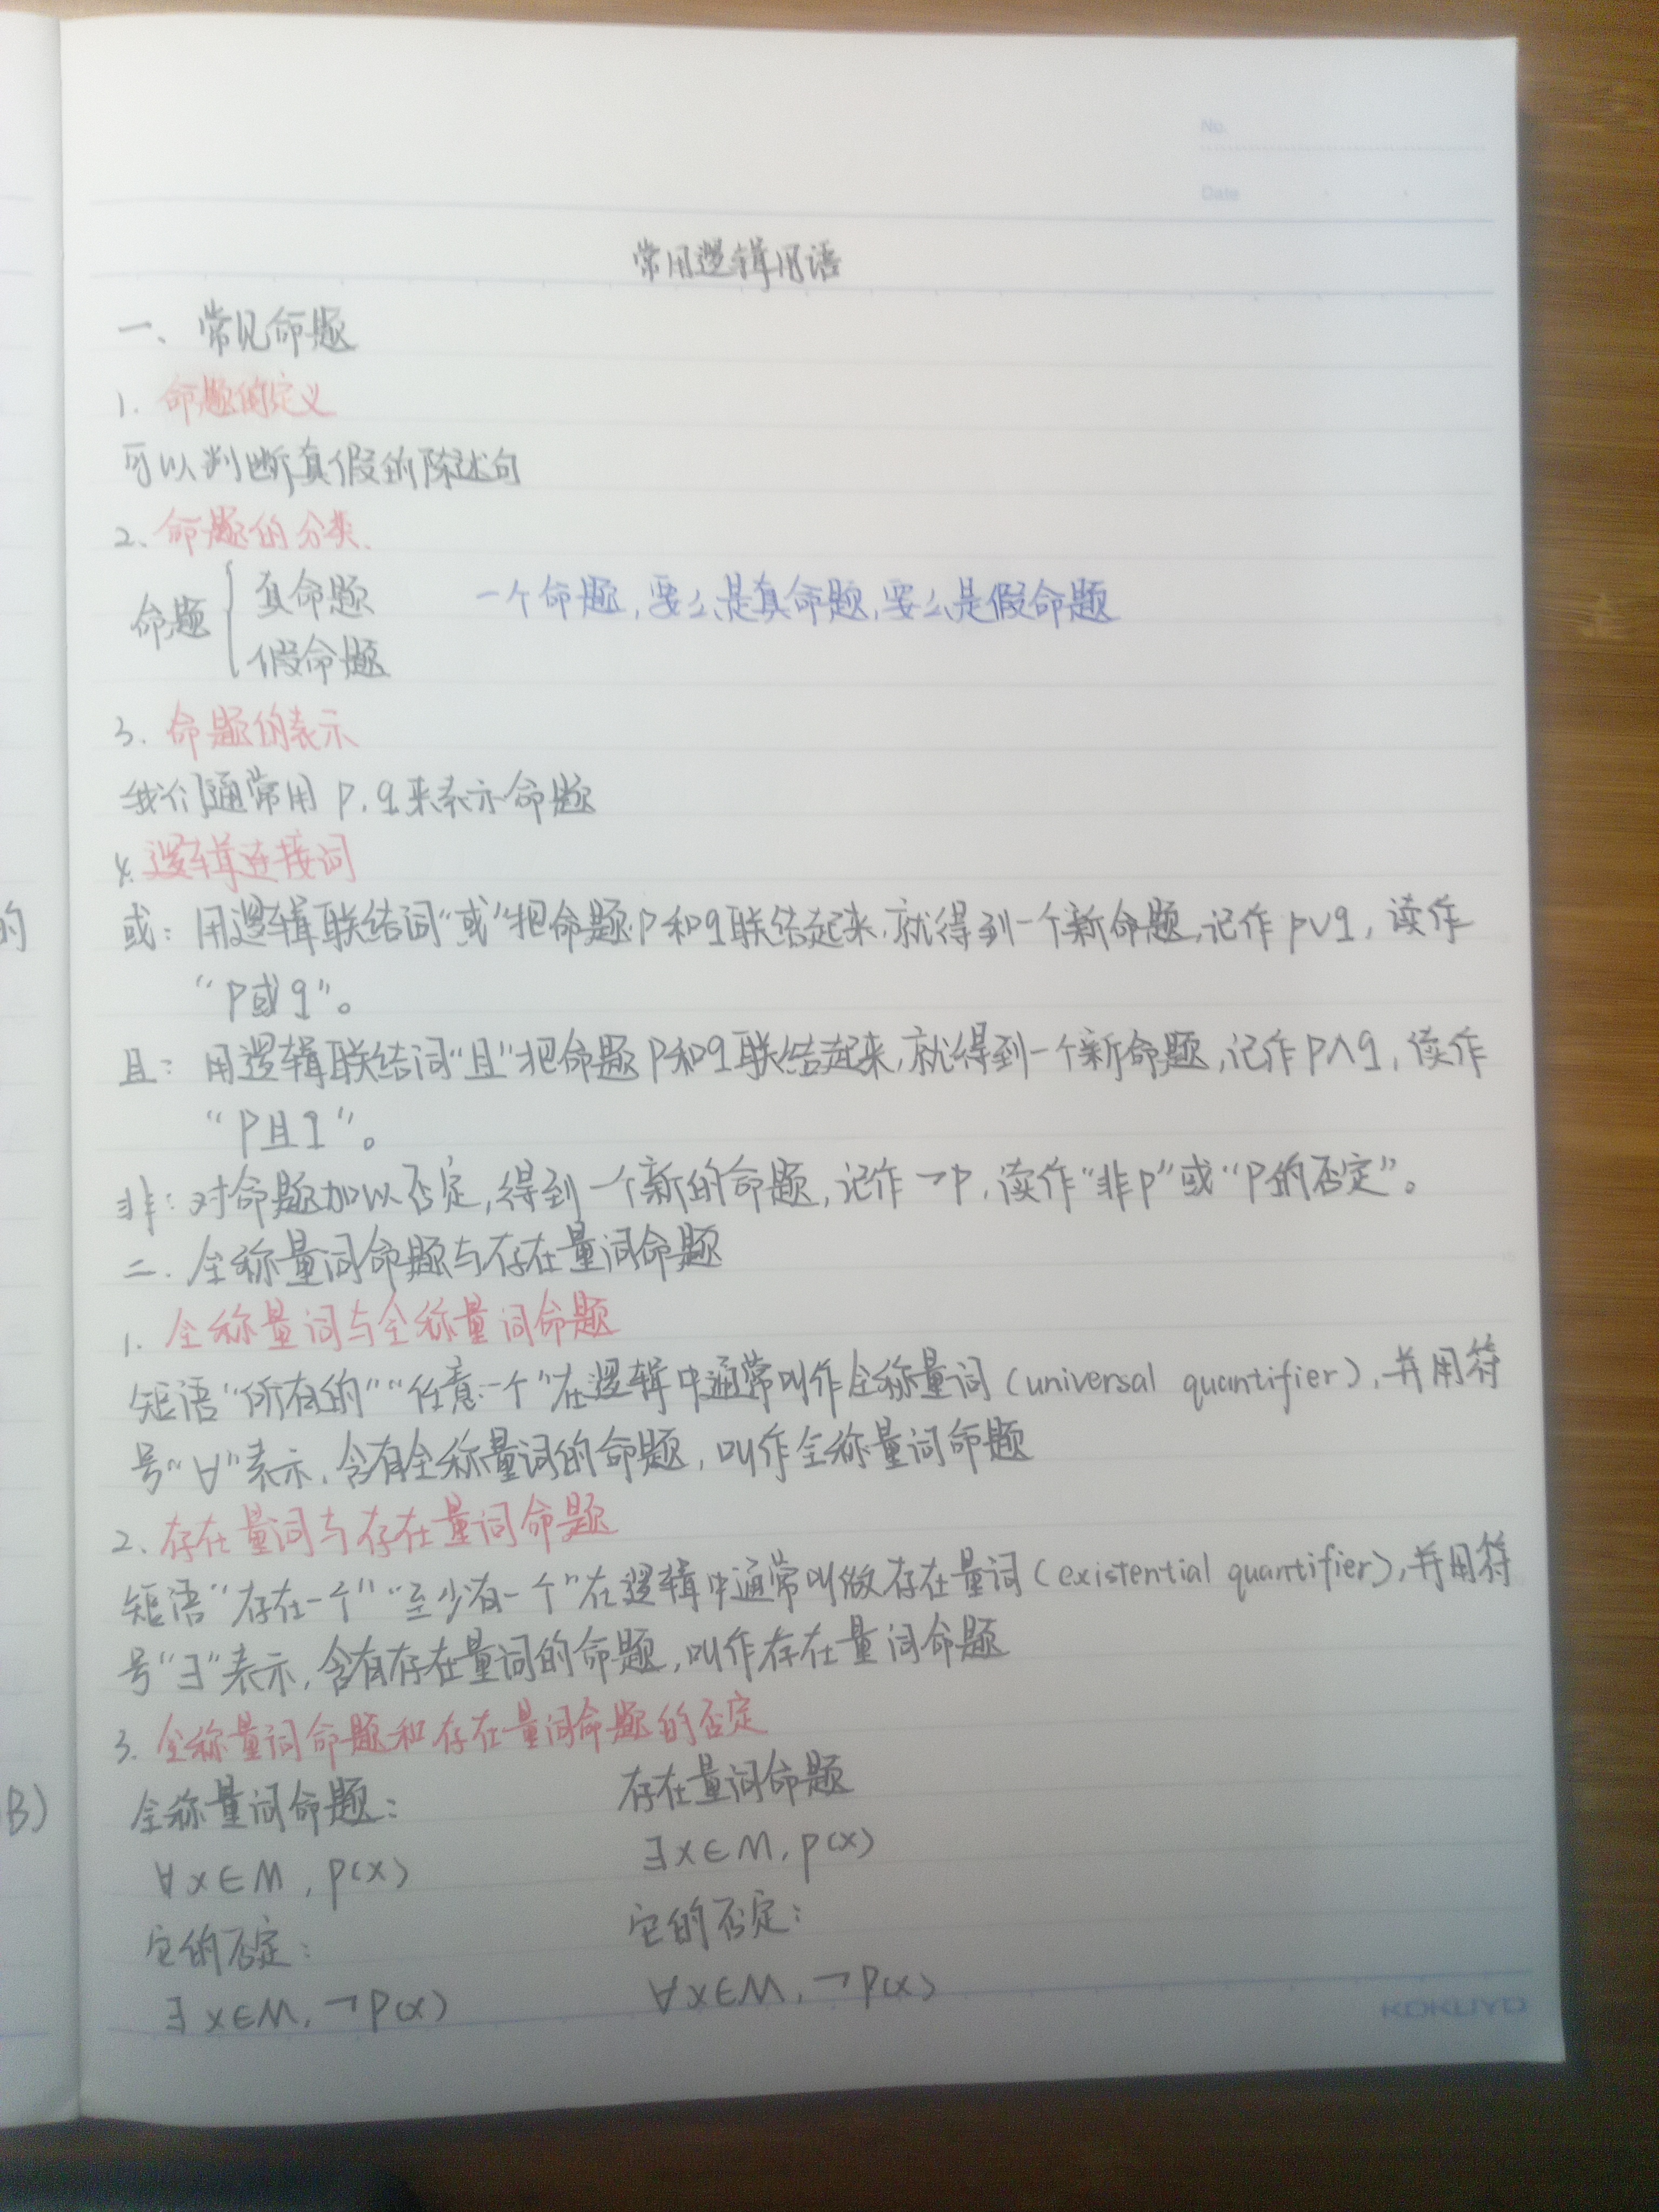 No.
Date
常用逻辑用语
一、常见命题
1. 命题的定义
可以判断真假的陈述句
2、命题的分类、
命题 { 真命题
假命题
一个命题，要么是真命题，要么是假命题
3. 命题的表示
我们通常用 p、q 来表示命题
4. 逻辑连接词
或：用逻辑联结词“或”把命题p和q联结起来，就得到一个新命题，记作 p∨q，读作
“p或q”。
且：用逻辑联结词“且”把命题p和q联结起来，就得到一个新命题，记作 p∧q，读作
“p且q”。
非：对命题加以否定，得到一个新的命题，记作 ¬p，读作“非p”或“p的否定”。
二、全称量词命题与存在量词命题
1. 全称量词与全称量词命题
短语“所有的”“任意一个”在逻辑中通常叫作全称量词（universal quantifier），并用符
号“∀”表示，含有全称量词的命题，叫作全称量词命题
2、存在量词与存在量词命题
短语“存在一个”“至少有一个”在逻辑中通常叫做存在量词（existential quantifier），并用符
号“∃”表示，含有存在量词的命题，叫作存在量词命题
3. 全称量词命题和存在量词命题的否定
全称量词命题：
∀x∈M，p(x)
它的否定：
∃x∈M，¬p(x)
存在量词命题
∃x∈M，p(x)
它的否定：
∀x∈M，¬p(x)
KOKUYO
的
B)